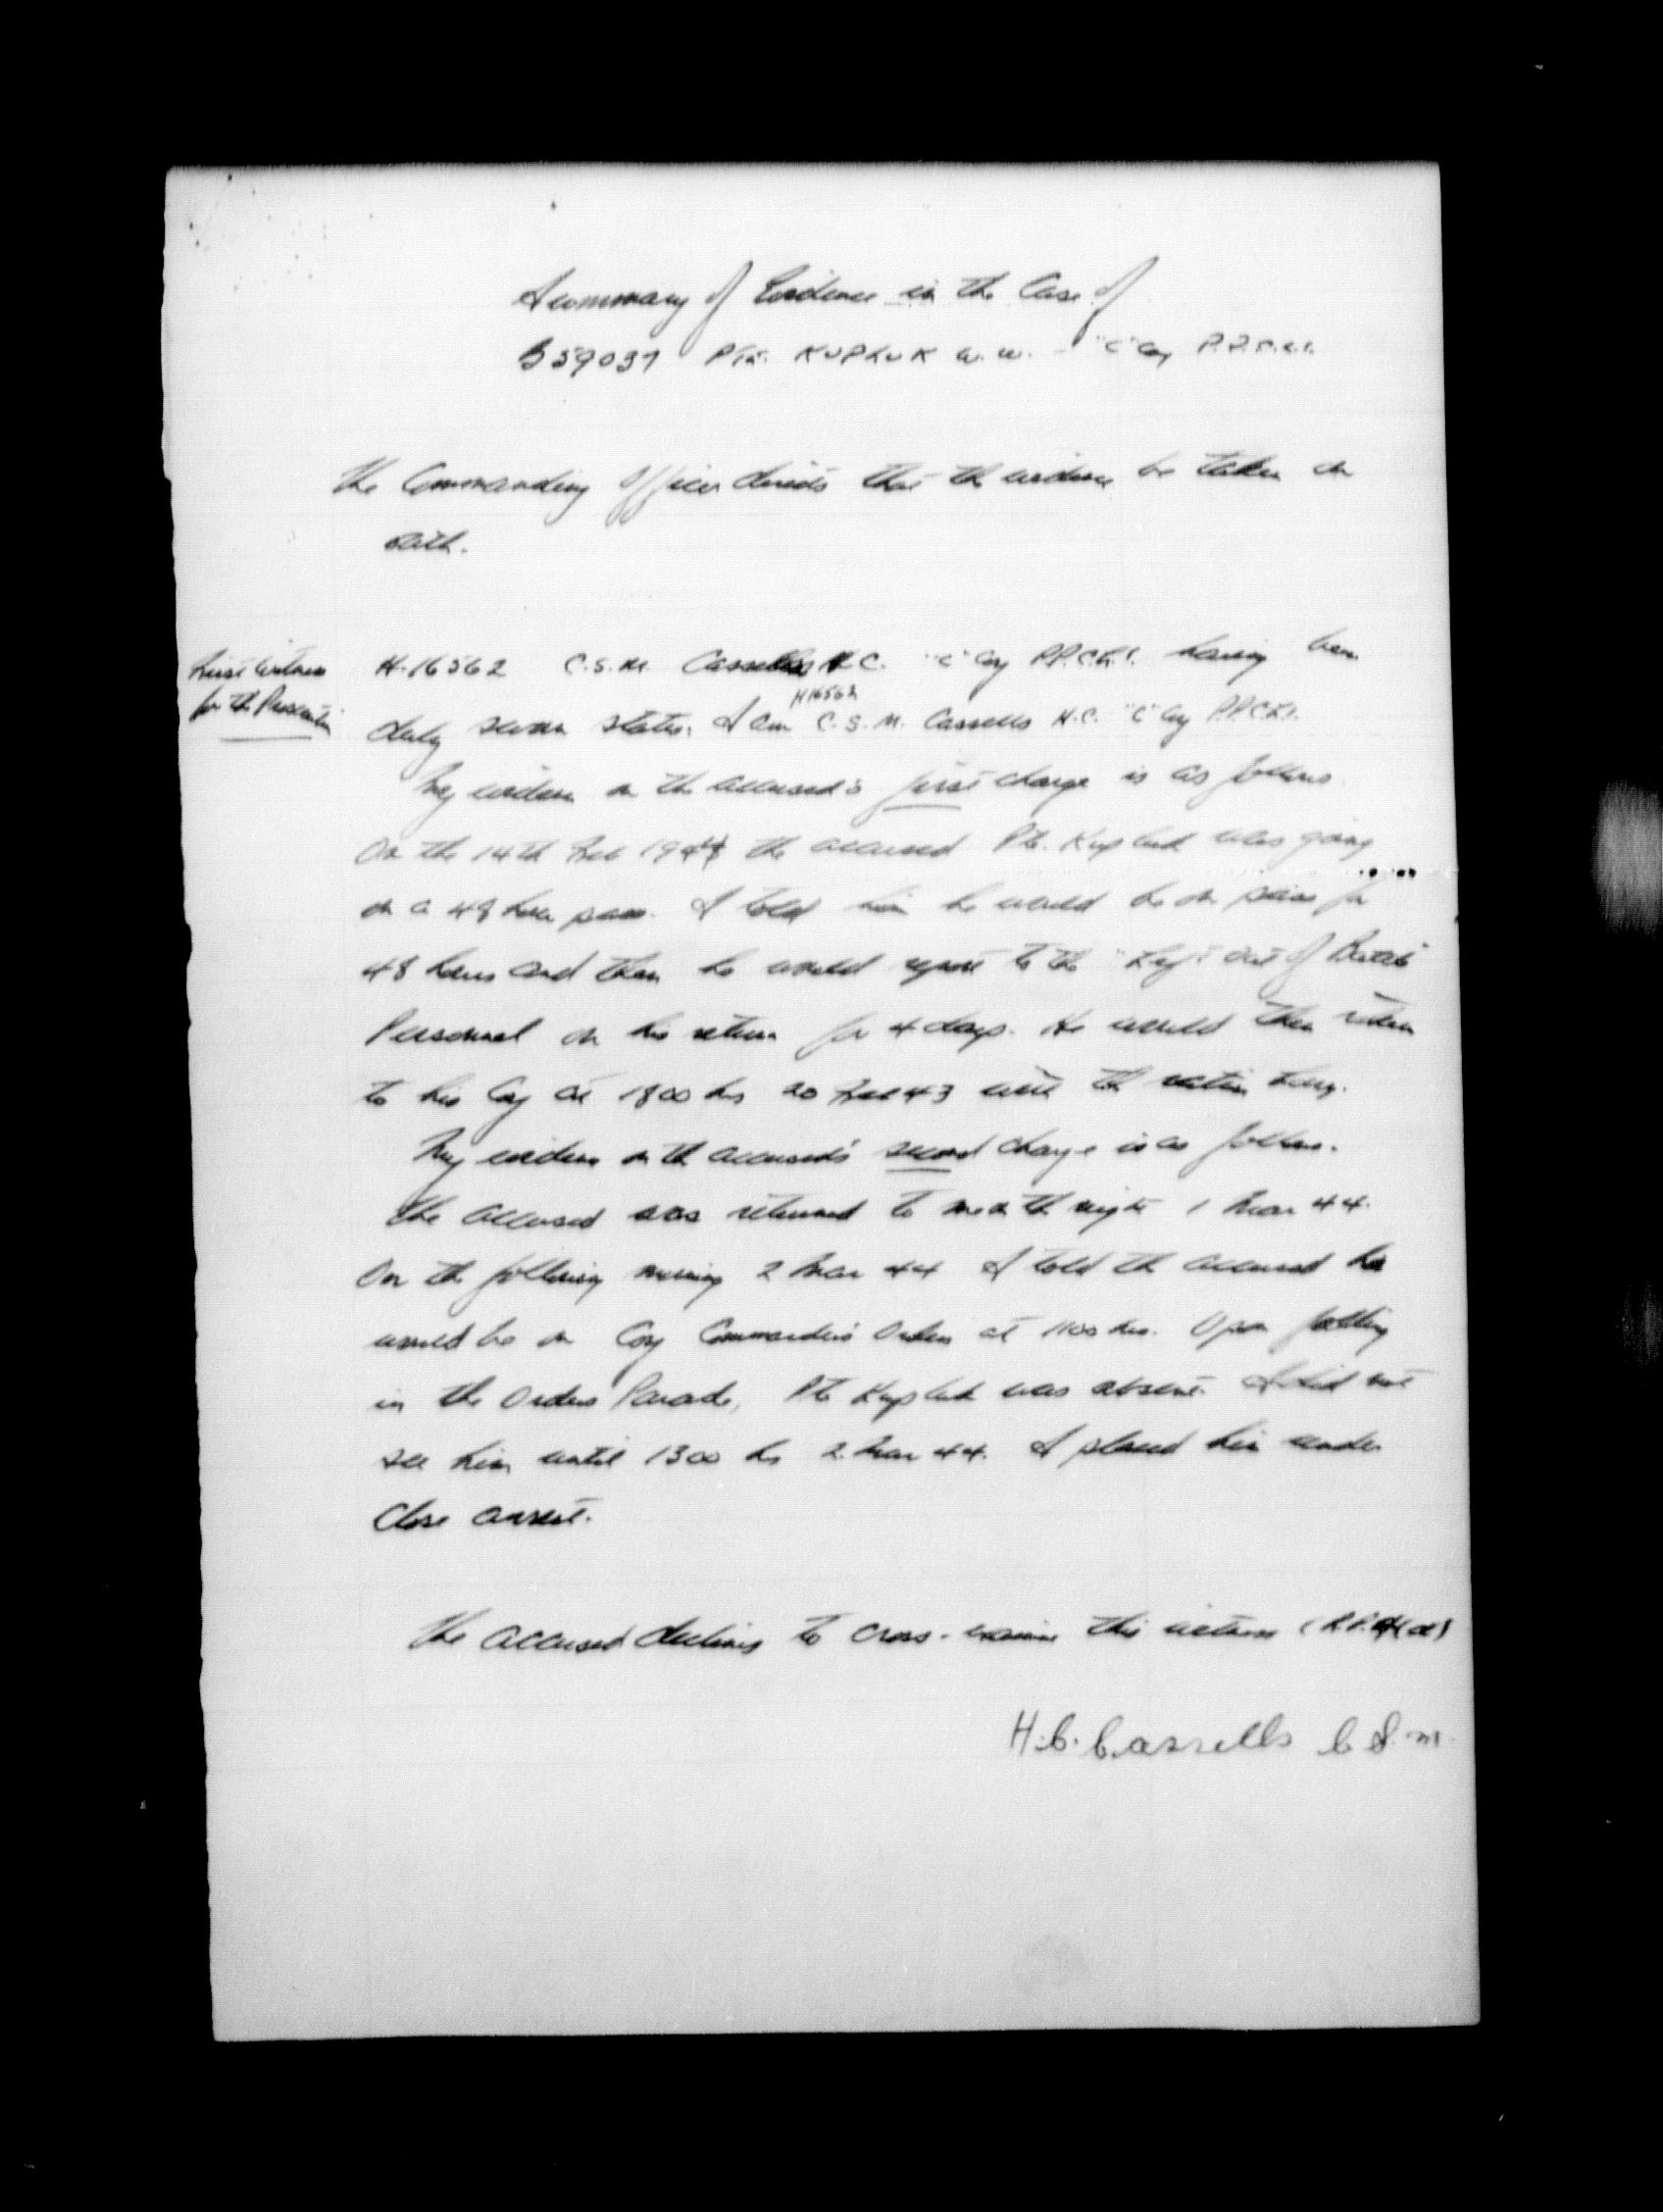 Summary of Evidence in the Case of
B59037 Pte. KUPLUK W.W. - "C" Coy P.P.C.L.I.
The Commanding Officer directs that the evidence be taken on
oath.
First Witness
for the Prosecution
H.16562 C.S.M. Cassells H.C. "C" Coy P.P.C.L.I. having been
H16562
duly sworn states: I am C.S.M. Cassells H.C. "C" Coy P.P.C.L.I.
My evidence on the accused's first charge is as follows
On the 14th Feb 1944 the accused Pte. Kupluk was going
on a 48 hour pass. I told him he would be on pass for
48 hours and then he would report to the "Left Out of Battle"
Personnel on his return for 4 days. He would then return
to his Coy at 1800 hrs 20 Feb 43 with the ration
My evidence on the accused's second charge is as follows.
The accused was returned to me on the night 1 Mar 44.
On the following morning 2 Mar 44 I told the accused he
would be on Coy Commander's Orders at 1100 hrs. Upon falling
in the Orders Parade, Pte Kupluk was absent. I did not
see him until 1300 hrs 2 Mar 44. I placed him under
close arrest.
The accused declines to cross-examine this witness (R.P.
H.C. Cassells C.S.M.